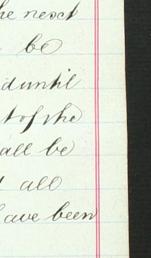 he next
be
d until
t of the
all be
all
have been